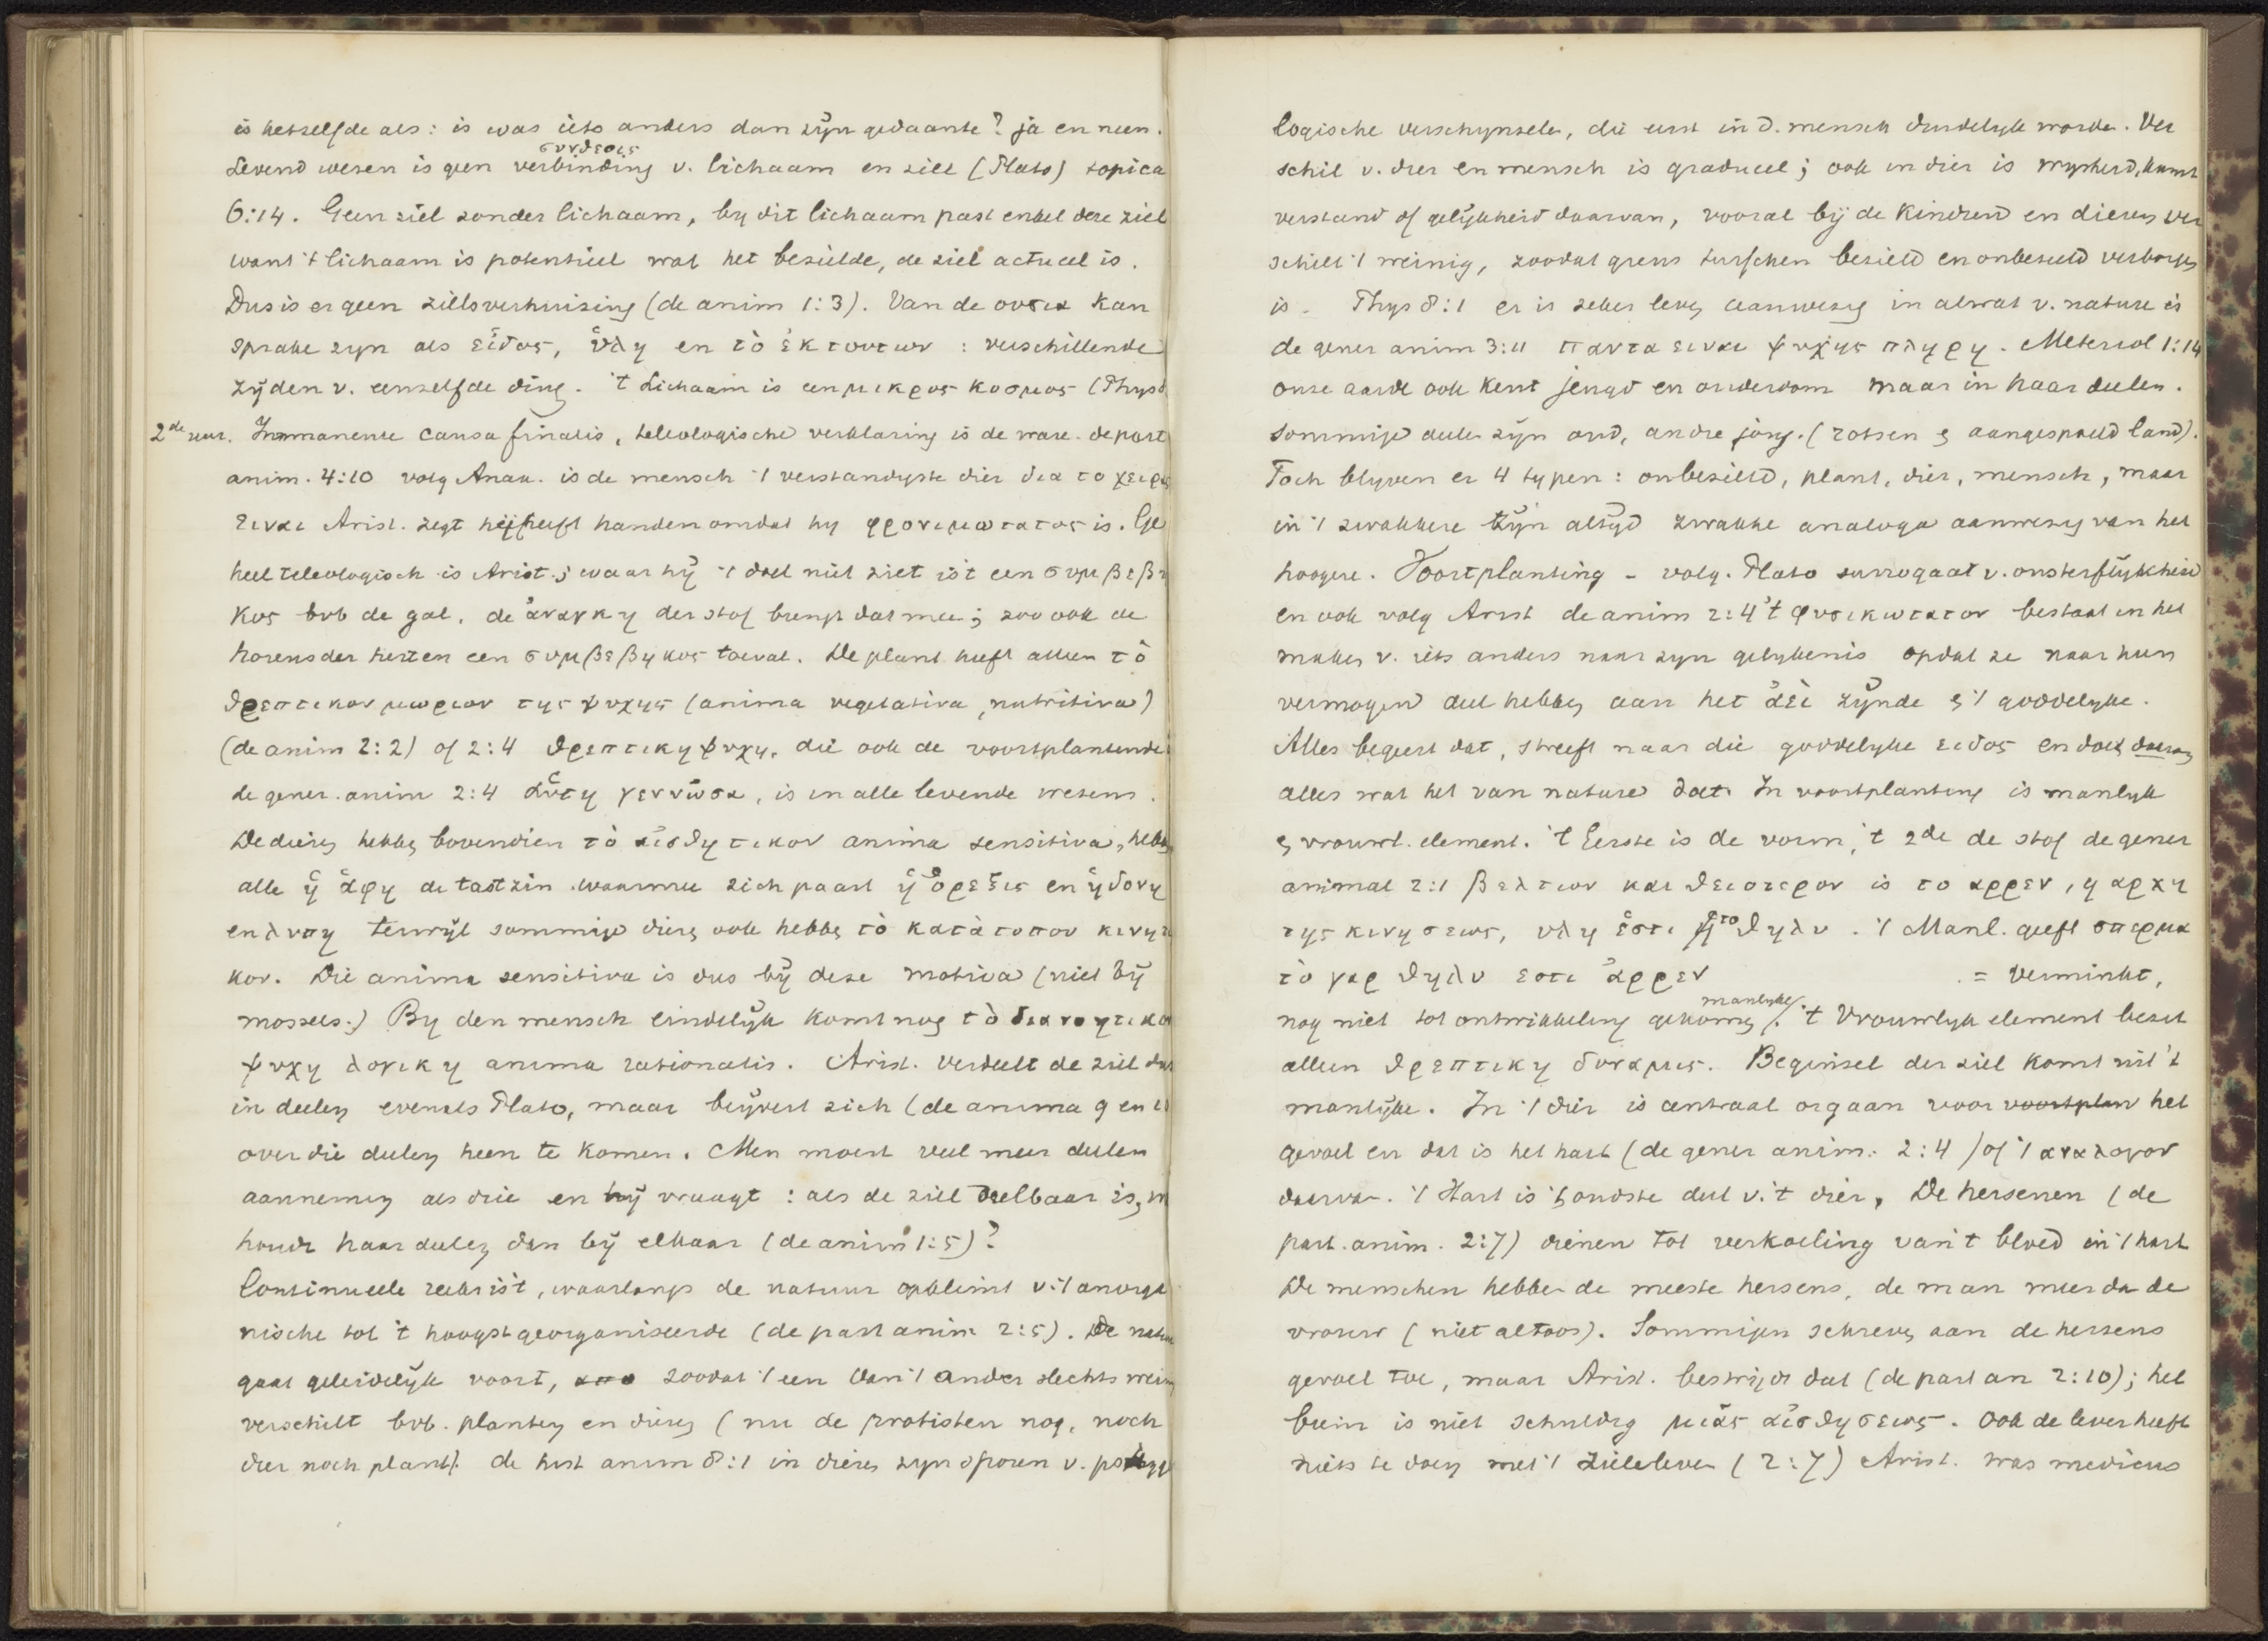 is hetzelfde als: is was iets anders dan zijn gedaante? ja en neen.
συνθεσις
Levend wezen is geen verbinding v. lichaam en ziel (Plato) topica
6:14. Geen ziel zonder lichaam, by dit lichaam past enkel deze ziel
want 't lichaam is potentieel wat het bezielde, de ziel actueel is.
Dus is er geen zielsverhuizing (de anim 1:3). Van de ουσια kan
sprake zyn als εἶδος, ὕλη en τὸ ἐκ τουτων : verschillende
zijden v. eenzelfde ding. 't Lichaam is een μικρος κοσμος (Phys 8
2de uur. Immanente causa finalis, teleologische verklaring is de ware. de part
anim. 4:10 volg Anax. is de mensch 't verstandigste dier δια το χειρας
ειναι Arist. zegt hij heeft handen omdat hy φρονιμωτατος is. Ge
heel teleologisch is Arist.; waar hij 't doel niet ziet is't een συμβεβη
κος bvb de gal, de ἀναγκη der stof brengt dat mee; zoo ook de
horens der herten een συμβεβηκος toeval. De plant heeft alleen τὸ
θρεπτικον μωριον της ψυχης (anima vegetativa, nutritiva)
(de anim 2:2) of 2:4 θρεπτικη ψυχη, die ook de voortplantende
de gener. anim 2:4 αὕτη γεννῶσα, is in alle levende wezens.
De dieren hebben bovendien τὸ αἰσθητικον anima sensitiva, hebben
alle ἡ ἁφη de tastzin waarmee zich paart ἡ ὄρεξις en ἡδονη
en λυπη terwijl sommige dieren ook hebben τὸ κατὰ τοπον κινητι
κον. Die anima sensitiva is dus bij deze motiva (niet bij
mossels.) By den mensch eindelijk komt nog τὸ διανοητικον
ψυχη λογικη anima rationalis. Arist. verdeelt de ziel dus
in deelen evenals Plato, maar beijvert zich (de anima 9 en 10
over die deelen heen te komen. Men moest veel meer deelen
aannemen als drie en hij vraagt: als de ziel deelbaar is, w
houdt haar deelen dan bij elkaar (de anim 1:5)?
Continueele reeks is't, waarlangs de natuur opklimt v. 't anorga
nische tot 't hoogst georganiseerde (de part anim 2:5). De natuur
gaat geleidelijk voort, zoodat 't een van 't ander slechts weinig
verschilt bvb. planten en dieren (nu de protisten nog, noch
dier noch plant). de hist anim 8:1 in dieren zyn sporen v. psycho
logische verschynselen, die eerst in d. mensch duidelyk worden. Ver
schil v. dier en mensch is gradueel; ook in dier is wysheid, kunst
verstand of gelijkheid daarvan, vooral bij de kinderen en dieren ver
schilt 't weinig, zoodat grens tusschen bezield en onbezield verborgen
is. Phys 8:1 er is zeker leven aanwezig in alwat v. nature is
de gener anim 3:11 παντα ειναι ψυχης πληρη. Meteorol 1:14
onze aarde ook kent jeugd en ouderdom maar in haar deelen.
Sommige deelen zijn oud, andre jong. (rotsen & aangespoeld land).
Toch blyven er 4 typen: onbezield, plant, dier, mensch, maar
in 't zwakkere zijn altijd zwakke analoga aanwezig van het
hoogere. Voortplanting - volg. Plato surrogaat v. onsterflijkheid
en ook volg Arist de anim 2:4 't φυσικωτατον bestaat in het
maken v. iets anders naar zyn gelykenis opdat ze naar hun
vermogen deel hebben aan het ἀεὶ zijnde & 't goddelyke.
Alles begeert dat, streeft naar die goddelyke ειδος en doet daarom
alles wat het van nature doet. In voortplanting is manlyk
& vrouwl. element. 't Eerste is de vorm, 't 2de de stof de gener
animal 2:1 βελτιον και θειοτερον is το αρρεν, η αρχη
της κινησεως, υλη ἐστι το θηλυ. 't Manl. geeft σπερμα
τὸ γαρ θηλυ εστι ἀρρεν = verminkt,
manlyke
nog niet tot ontwikkeling gekomen. 't Vrouwlyk element bezit
alleen θρεπτικη δυναμις. Beginsel der ziel komt uit 't
manlijke. In 't dier is centraal orgaan voor voortplan het
gevoel en dat is het hart (de gener anim. 2:4) of 't αναλογον
daarvan. 't Hart is 't oudste deel v. 't dier. De hersenen (de
part. anim. 2:7) dienen tot verkoeling van 't bloed in 't hart
De menschen hebben de meeste hersens, de man meer dan de
vrouw (niet altoos). Sommigen schreven aan de hersens
gevoel toe, maar Arist. bestrijdt dat (de part an 2:10); het
brein is niet schuldig μιᾶς αἰσθησεως. Ook de lever heeft
niets te doen met 't zieleleven (2:7) Arist. was medicus